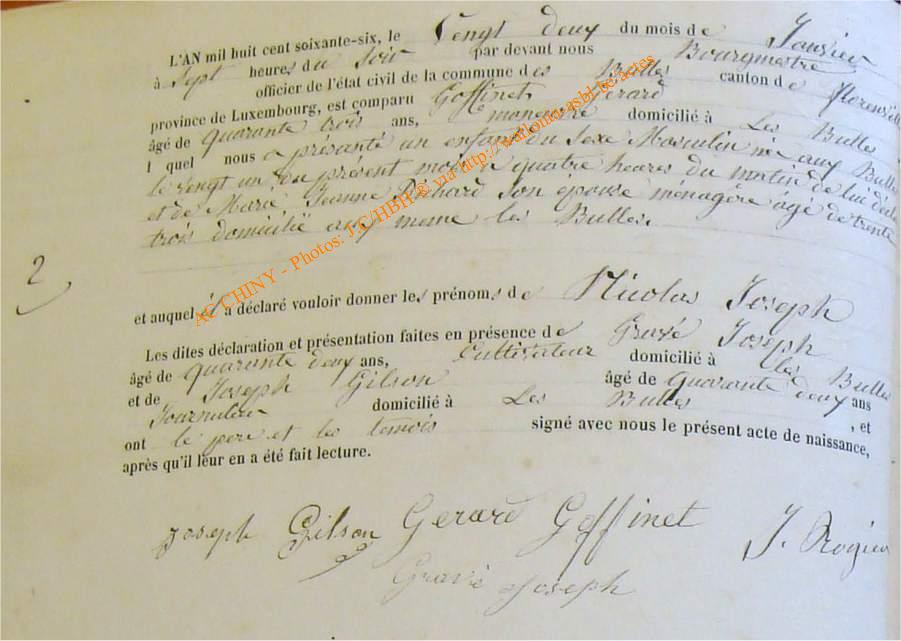 L'AN mil huit cent soixante-six, le Vengt deux du mois de Janvier
à Sept heures du Soir par devant nous Bourgmestre
officier de l'état civil de la commune des Bulles canton de florenville
province de Luxembourg, est comparu Goffinet Gerard
âgé de quarante trois ans, manœuvre domicilié à Les Bulles
l quel nous a présanté un enfant du Sexe Masculin né aux Bulles
le vengt un du présent mois a quatre heures du matin de lui
et de Marie Jeanne Richard Son épouse ménagère agé de trente
trois domicilié au meme les Bulles.
2
et auquel il a déclaré vouloir donner les prénoms de Nicolas Joseph
Les dites déclaration et présentation faites en présence de Gravé Joseph
âgé de quarante deux ans, Cultivateur domicilié à les Bulles
et de Joseph Gilson âgé de quarante deux ans
Journalier domicilié à Les Bulles , et
ont le pere et les temois signé avec nous le présent acte de naissance,
après qu'il leur en a été fait lecture.
Joseph Gilson Gerard Goffinet J. Rogier
Gravé Joseph
AC CHINY - Photos: J.C/HBH® via http://wallonia-asbl.be/actes